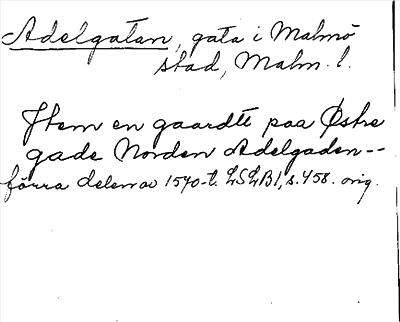 Adelgatan, gata i Malmö
stad, Malm. l.
Jtem en gaardtt paa Østre
gade Norden Adelgaden--
förra delen av 1540-t. LSLB1, s. 458. orig.